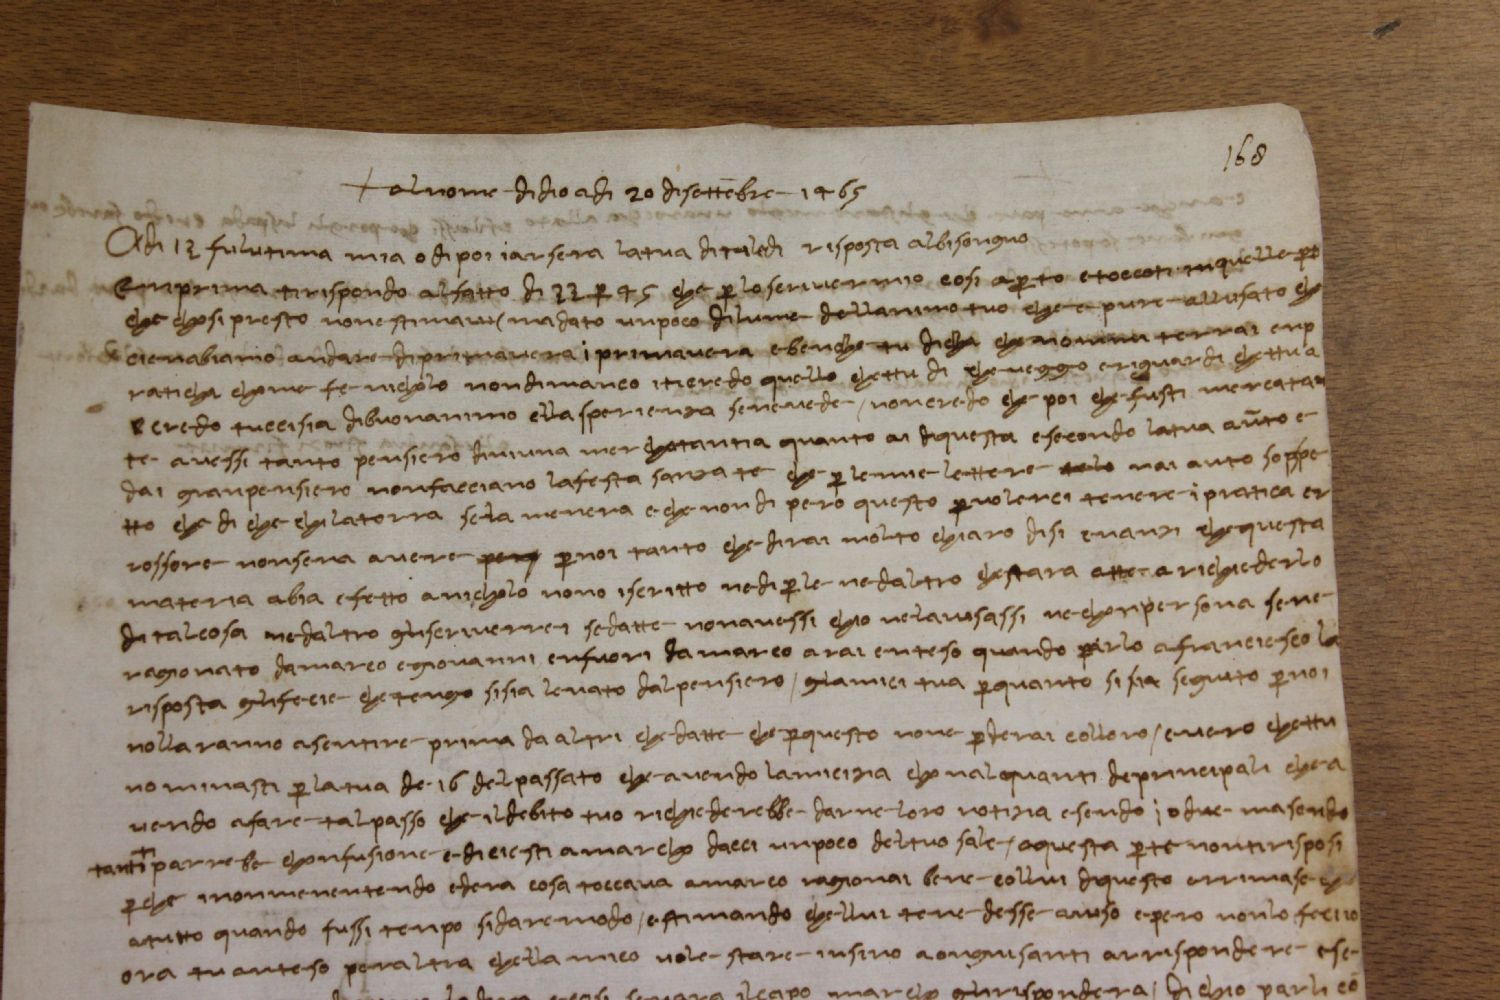 168
+ al nome di dio adi 20 di settēbre 1465
Adi 12 fu lutima mia o di poi iarsera la tua di tale di risposta al bisongno
E in prima ti rispondo al fatto di 22 p 45 che p lo scriver mio cosi apto e toccoti in quelle pto
che chosi presto none stimavi ma dato un poco di lume dellanimo tuo che e pure allusato ch
cienabiamo andare di primavera i primavera e benche tu dicha che terrai enp
raticha chome fe nicholo nondimanco iti credo quello chettu di che veggo e riguardi chettu a
e credo tuccisia di buonanimo ella sperienza se ne vede / non credo che poi che fusti mercatan
te avessi tanto pensiero diniuna merchatantia quanto ai di questa e secondo la tua auto e
dai gran pensiero non facciano la festa sanza te che p le mie lettere nai auto soppe
tto che di che chi latorra se la menera e che non di pero questo p volerci tenere i pratica er
rossore non sera avere p noi tanto che dirai molto chiaro di si enanzi che questa
materia abia efetto a nicholo nono iscritto ne di ple ne daltro chestara atte a richiederlo
di tal cosa ne daltro gliscriverrei se datte nonavessi chio nelavisassi ne chonpersona sene
ragionato da marco e giovanni enfuori da marco arai enteso quando parlo a franciescho la
risposta glifecie che tengo sisia levato dal pensiero / gliamici tua p quanto si sia seguito p noi
nollaranno a sentire prima da altri che datte che p questo none pderai colloro / e vero chettu
nominasti p la tua de 16 del passato che avendo lamicizia chonalquanti de principali che a
vendo a fare tal passo che il debito tuo richiederebbe darne loro notizia e sendo i o due ma sendo
tanti parrebe chonfusione e diciesti a marcho dacci un poco del tuo sale / a questa pte non ti risposi
pche inonmenentendo edera cosa toccava a marco ragionai bene collui di questo errimase che
atutto quando fussi tenpo si dare modo / estimando chellui te ne desse aviso e pero nonlo feciio
ora tu ai inteso peraltra chella mico vole stare insino a ongnisanti a rrispondere e se
il capo marcho glirispondera / di chio parli cō